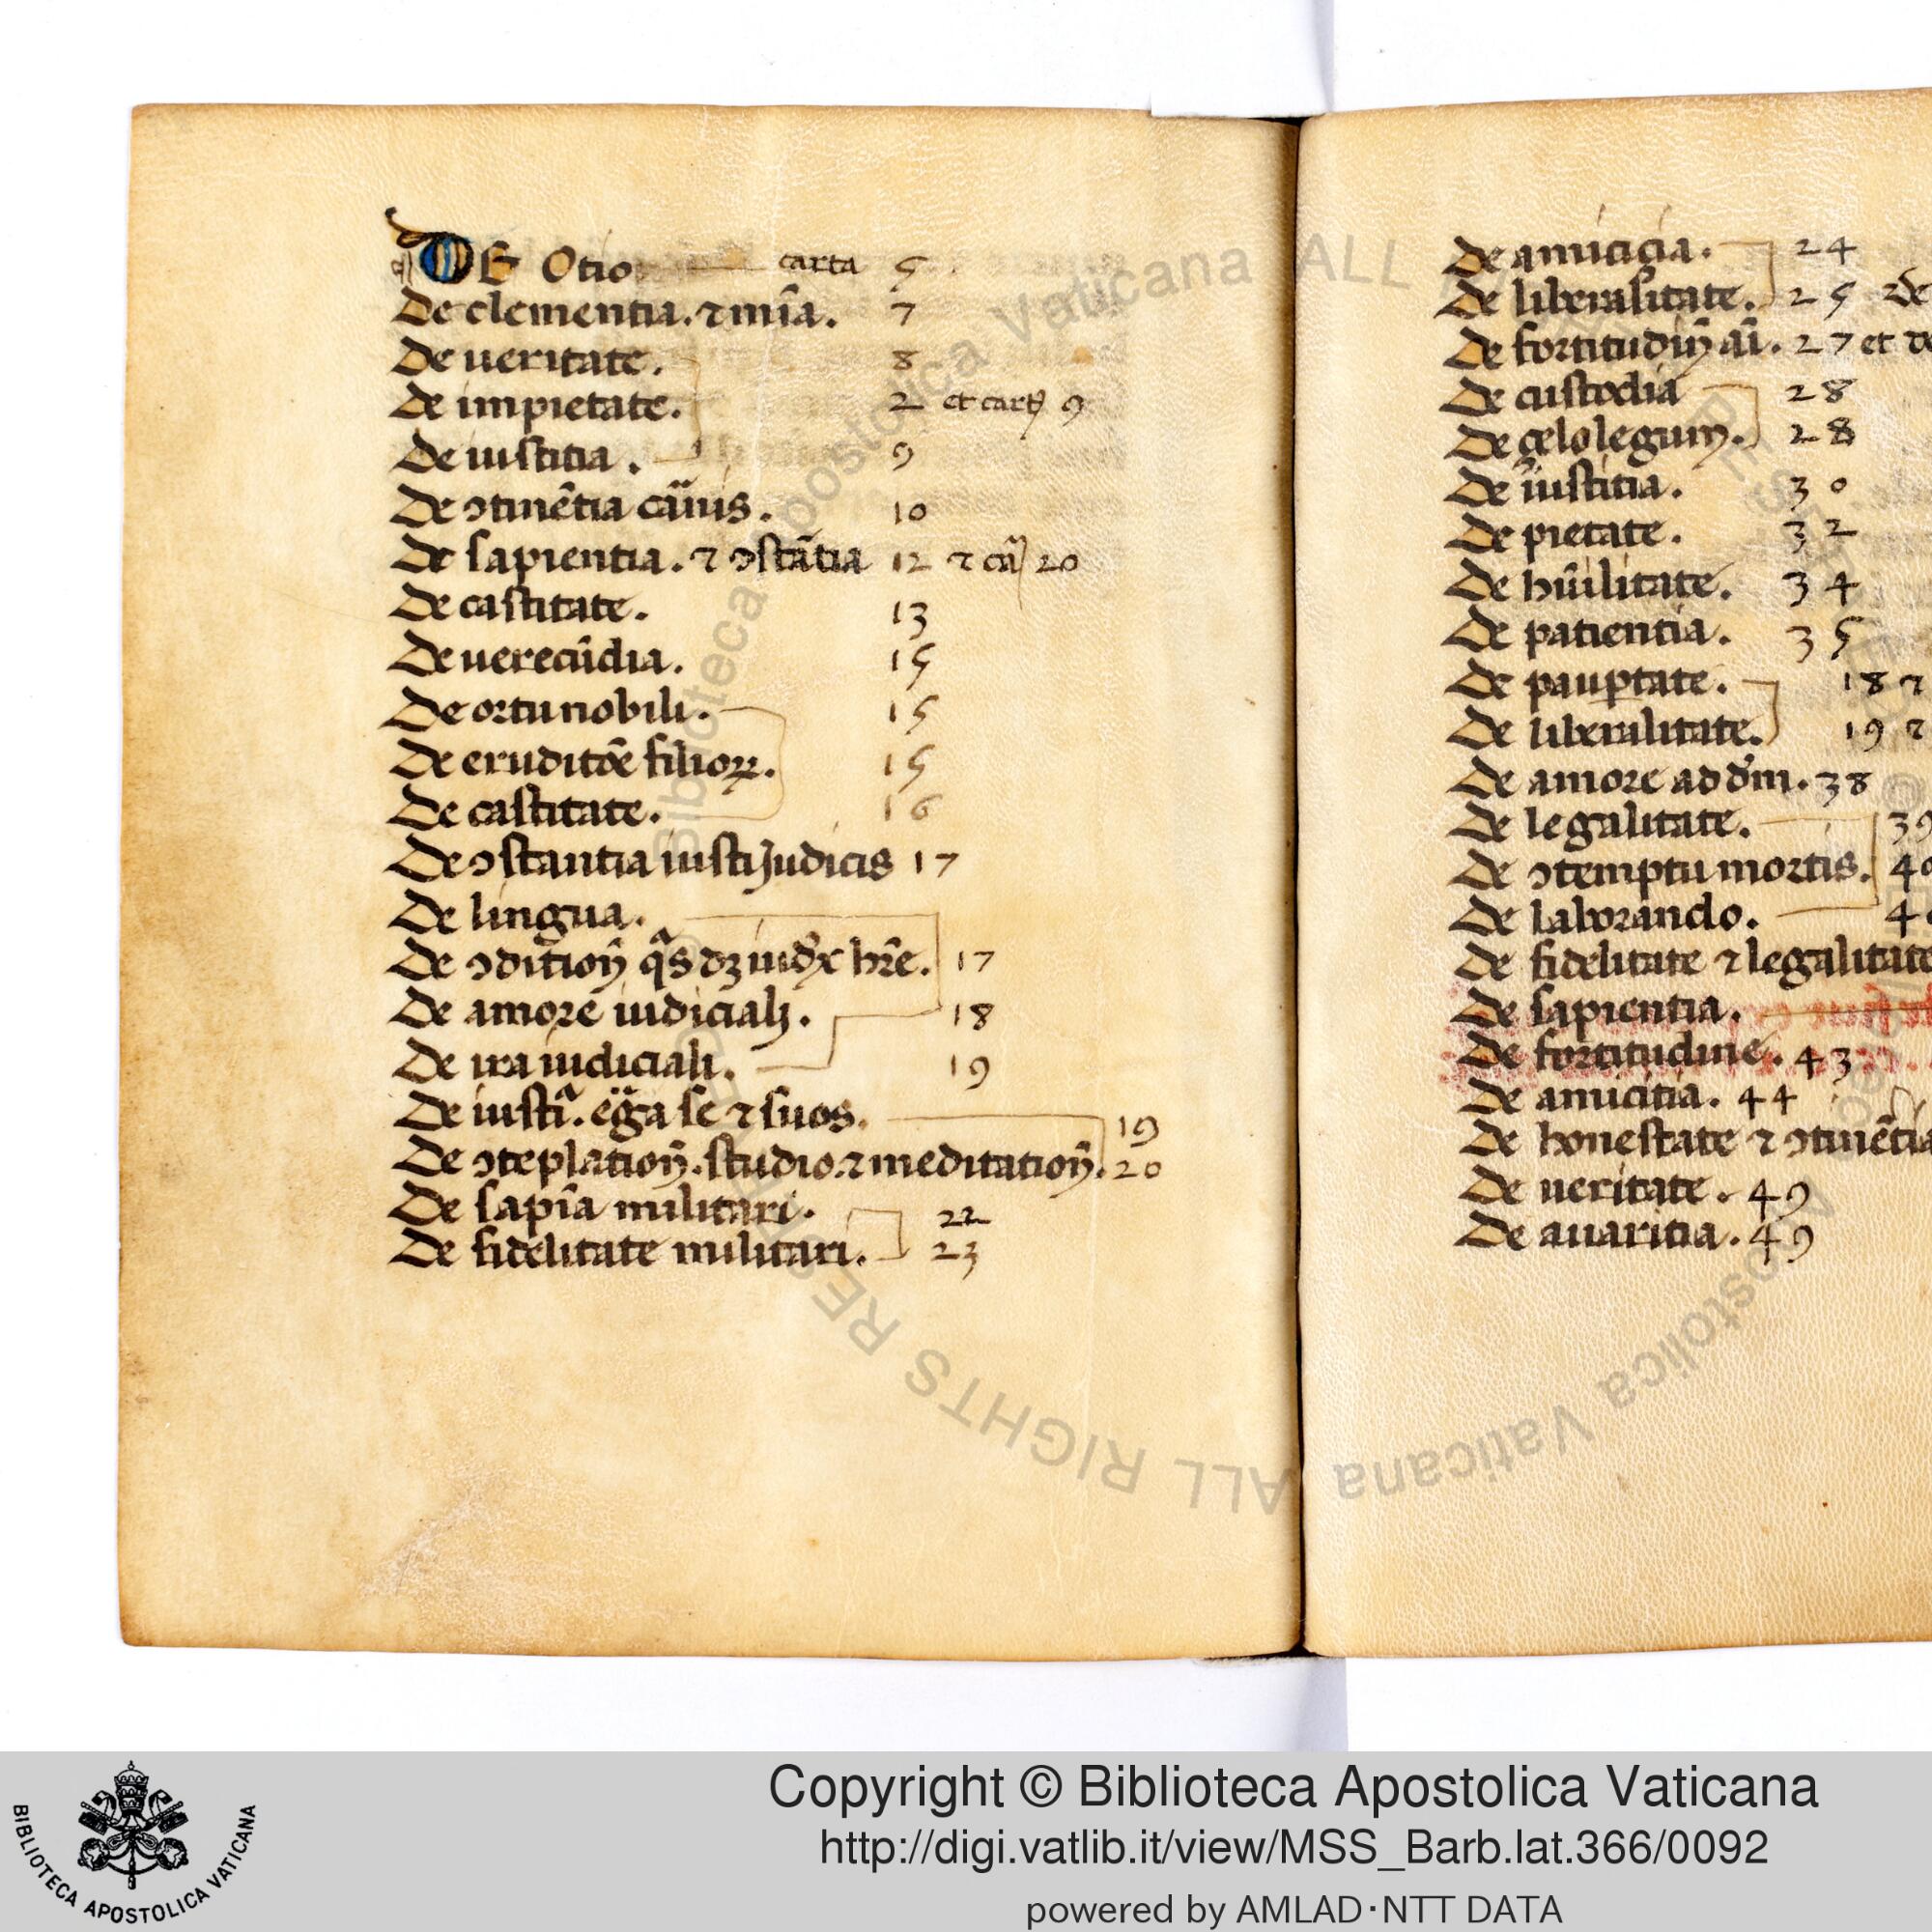 DE Otio carta 5
De clementia. ⁊ mīa. 7
De ueritate. 8
De impietate. 2 et cart 9
De iustitia. 9
De ↄtinētia carnis. 10
De sapientia. ⁊ ↄstātia 12 ⁊ ca 20
De castitate. 13
De uerecūdia. 15
De ortu nobili. 15
De eruditōe filioꝝ. 15
De castitate. 16
De ↄstantia iusti Judicis 17
De lingua.
De ↄdition̄ qͣs dꝫ iudex hr̄e. 17
De amore iudiciali. 18
De ira iudiciali. 19
De iustiͣ. erga se ⁊ suos. 19
De ↄteplation̄. studio. ⁊ meditation̄. 20
De sapīa militari. 22
De fidelitate militari. 23
De amicicia. 24
De liberalitate. 25 de
De fortitudin̄ aī. 27 et de
De custodia 28
De celo legum. 28
De iustitia. 30
De pietate. 32
De hūilitate. 34
De patientia. 35
De pauꝑtate. 18 ⁊
De liberalitate. 19 ⁊
De amore ad dm̄. 38
De legalitate. 39
De ↄtemptu mortis. 40
De laborando. 4
De fidelitate ⁊ legalitate
De sapientia.
De fortitudine. 43
De amicitia. 44
De honestate ⁊ ↄtinētia
De ueritate. 49
De auaritia. 49
Biblioteca Apostolica Vaticana ALL RIGHTS RESERVED ©
BIBLIOTECA APOSTOLICA VATICANA
Copyright © Biblioteca Apostolica Vaticana
http://digi.vatlib.it/view/MSS_Barb.lat.366/0092
powered by AMLAD·NTT DATA